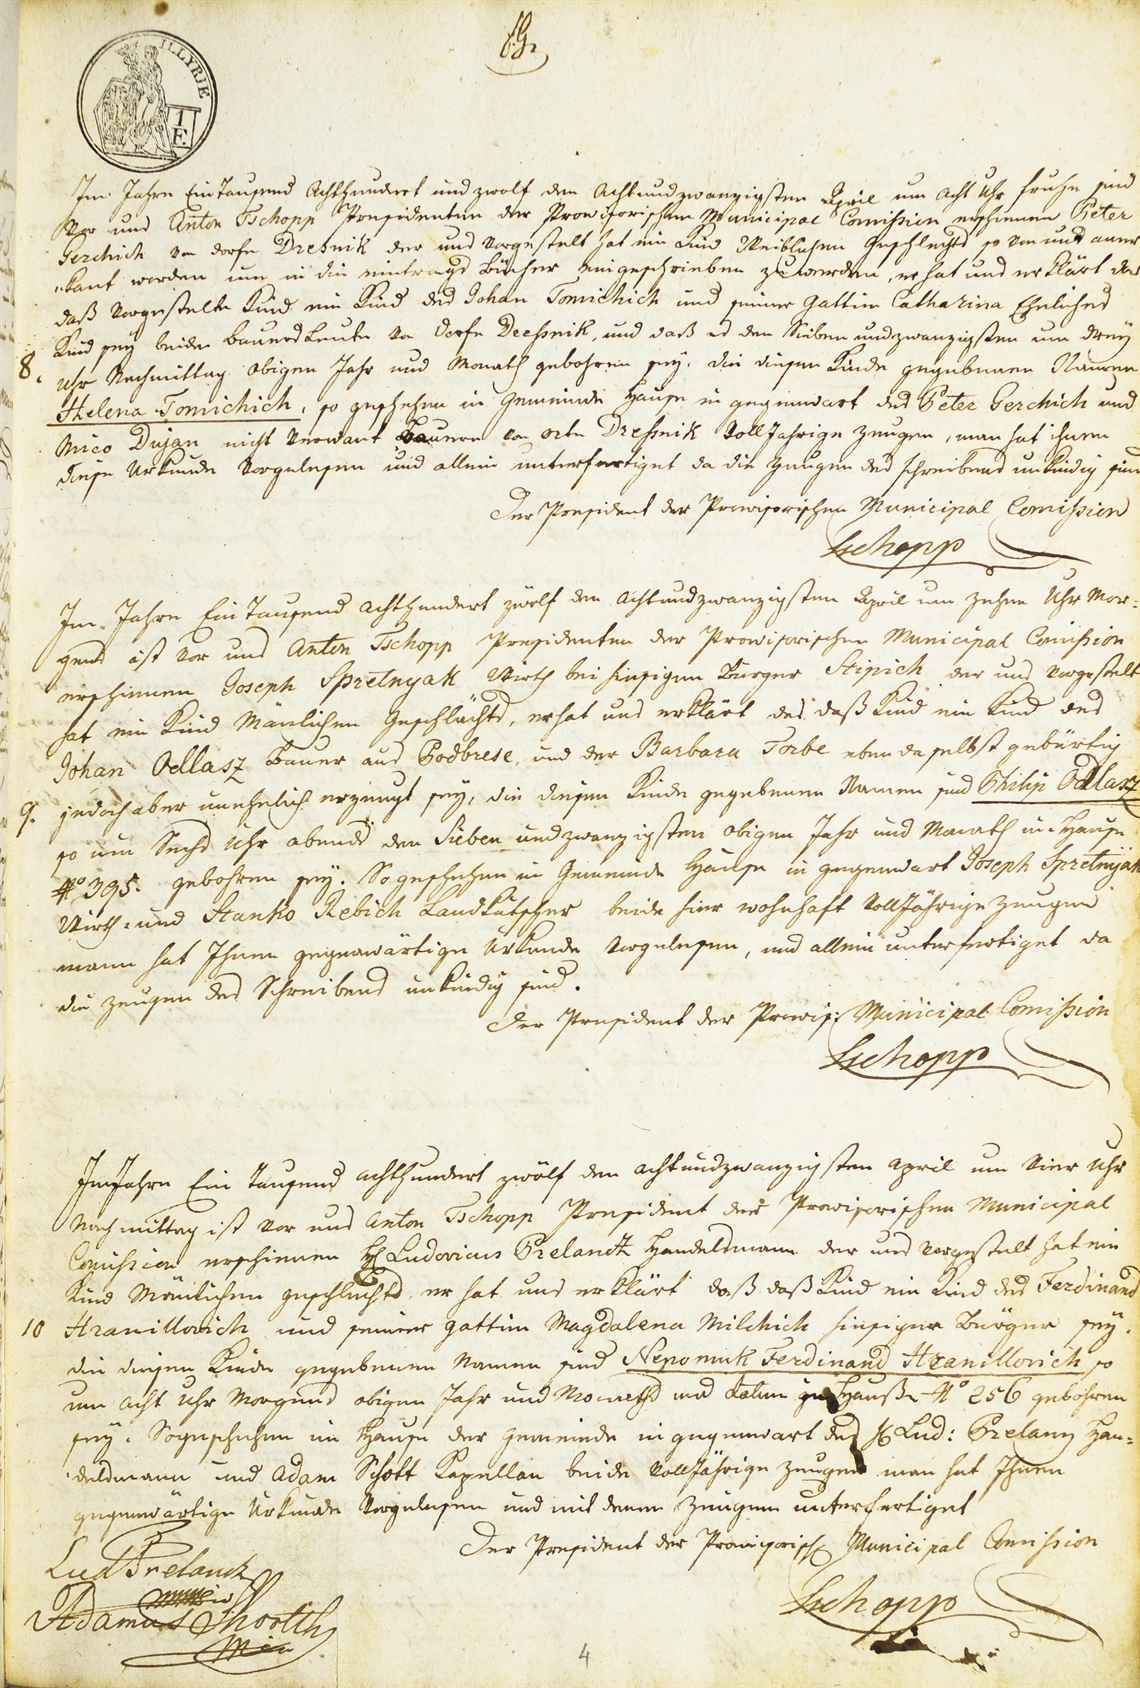 ILLYRIE
1 F.
Im Jahre Ein Tausend Achthundert und zwolf den Achtundzwanzigsten April um Acht Uhr fruhe sind
Vor uns Anton Tschopp Presidenten der Prowisorischen Municipal Comission erschienen Peter
Gerchich von dorfe Dresnik der uns Vorgestelt hat ein Kind Weiblichen Geschlechts so von uns aner
kant worden um in die eintrags Bücher eingeschrieben zu werden, er hat uns erklärt das
daß Vorgestelte Kind ein Kind des Johan Tomichich und seiner Gattin Catharina Eheliches
Kind sey beide Bauers Leute von Dorfe Dresnik, und daß es den Siebenundzwanzigsten um drey
8.
Uhr Nachmittag obigen Jahr und Monath gebohren sey, die diesem Kinde gegebenen Namen
Helena Tomichich, so geschehen in Gemeinde Hause in gegenwart des Peter Gerchich und
Mico Dujan nicht Verwant Bauern von orte Dresnik Volljahrige Zeugen, man hat ihnen
diese Urkunde Vorgelesen und allein unterfertiget da die Zeugen des schreibens unkündig sind
Der President der Prowisorischen Municipal Comission
Tschopp
Im Jahre Ein Tausend achthundert zwölf den achtundzwanzigsten April um Zehen Uhr Mor=
gens ist Vor uns Anton Tschopp Presidenten der Prowisorischen Municipal Comission
erschienen Joseph Spretnyak Wirth bei hiesigen Burger Stipich der uns Vorgestelt
hat ein Kind Mänlichen Geschlächts, er hat uns erklärt das daß Kind ein Kind des
Johan Odlasz Bauer aus Podbrese, und der Barbara Torbe eben daselbst gebürtig
9.
jedoch aber unehelich erzeugt sey, die diesem Kinde gegebenen Namen sind Philip Odlasz
so um Sechs Uhr abends den Sieben undzwanzigsten obigen Jahr und Monath in Hause
No 395. gebohren sey. So geschehen in Gemeinde Hause in gegenwart Joseph Spretnyak
Wirth und Stanko Rebich Landkutscher beide hier wohnhaft Volljährige Zeugen
mann hat Ihnen gegenwärtige Urkunde Vorgelesen, und allein unterfertiget da
die Zeugen des Schreibens unkündig sind.
Der President der Prowis: Municipal Comission
Tschopp
Im Jahre Ein Tausend achthundert zwölf den achtundzwanzigsten April um Vier Uhr
Nachmittag ist Vor uns Anton Tschopp President der Prowisorischen Municipal
Comission erschienen H Ludovicus Prelandz Handelsmann der uns Vorgestelt hat ein
Kind Mänlichen geschlechts er hat uns erklärt daß daß Kind ein Kind des Ferdinand
10
Hranillovich und seiner Gattin Magdalena Milchich hiesiger Bürger sey,
die diesem Kinde gegebenen Namen sind Nepomuk Ferdinand Hranillovich so
um Acht Uhr Morgens obigen Jahr und Monaths und datum Hause No 256 gebohren
sey. So geschehen im Hause der Gemeinde in gegenwart des H Lud: Prelanz Han=
delsmann und Adam Schott Kapellan beide Volljährige Zeugen man hat Ihnen
gegenwärtige Urkunde Vorgelesen und mit denen Zeugen unterfertiget
Der President der Prowisorisch Municipal Comission
Lud Prelanck
Tschopp
Adamus
4